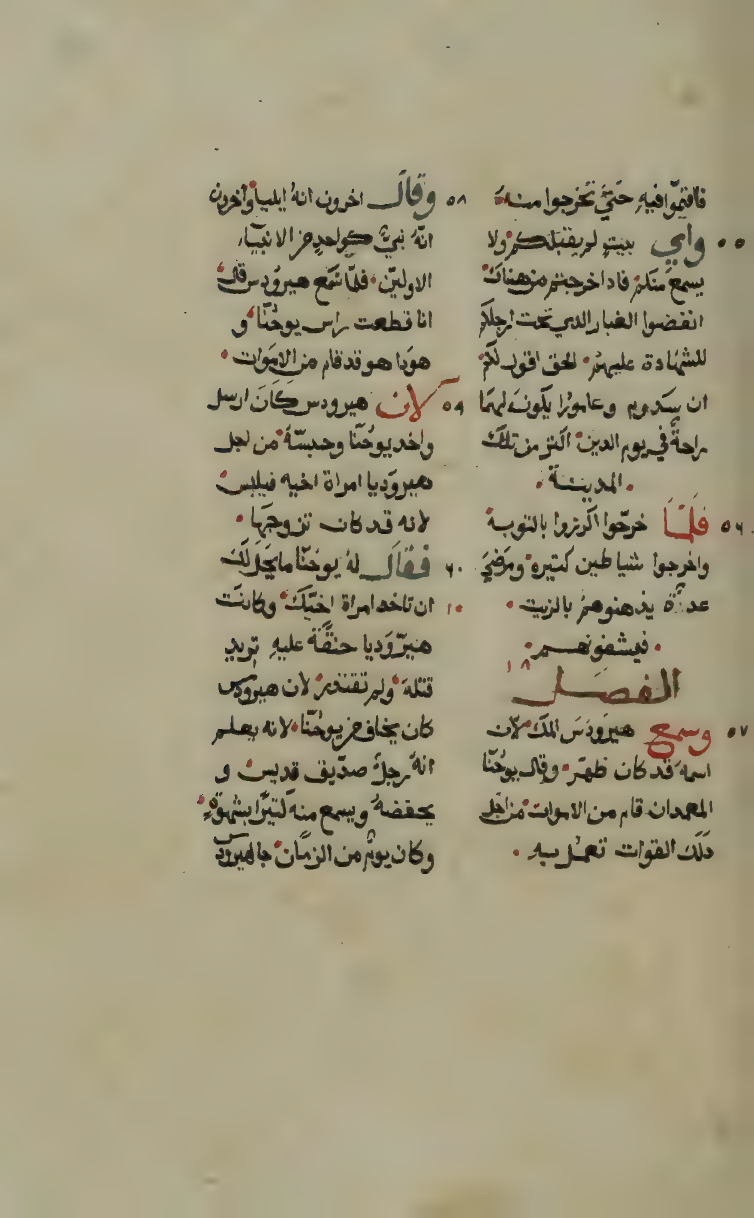 فاقيموا فيه حتي تخرجوا منه
٥٥ واي بيت لم يقبلكم ولا
يسمع منكم فادا خرجتم من هناك
انفضوا الغبار الدي تحت ارجلكم
للشهادة عليهم الحق اقول لكم
ان سدوم وعامورا يكون لهما
راحة في يوم الدين اكتر من تلك
المدينة
٥٦ فلما خرجوا اكرزوا بالتوبة
واخرجوا شياطين كتيرة ومرضي
عدة يدهنوهم بالزيت
فيشفونهم
الفصل ١٨
٥٧ وسمع هيرودس الملك لان
اسمه قد كان ظهر وقال يوحنا
المعمدان قام من الاموات من اجل
دلك القوات تعمل به
٥٨ وقال اخرون انه ايليا واخرون
انه نبي كواحد من الانبياء
الاولين فلما سمع هيرودس قال
انا قطعت راس يوحنا و
هودا هو قد قام من الاموات
٥٩ لان هيرودس كان ارسل
واخد يوحنا وحبسه من اجل
هيروديا امراة اخيه فيلبس
لانه قد كان تزوجها
٦٠ فقال له يوحنا ما يحل لك
١٠ ان تاخد امراة اخيك وكانت
هيروديا حنقة عليه تريد
قتله ولم تقتدر لان هيرودس
كان يخاف من يوحنا لانه يعلم
انه رجل صديق قديس و
يحفضه ويسمع منه كتيرا بشهوة
وكان يوم من الزمان جا لهيرودس